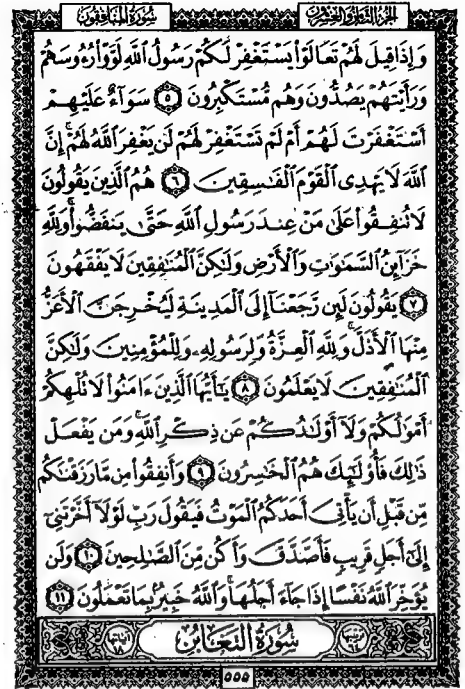 سُورَةُ المُنَافِقُون الجُزْءُ الثَّامِنُ وَالعِشْرُونَ
وَإِذَا قِيلَ لَهُمْ تَعَالَوْا۟ يَسْتَغْفِرْ لَكُمْ رَسُولُ ٱللَّهِ لَوَّوْا۟ رُءُوسَهُمْ
وَرَأَيْتَهُمْ يَصُدُّونَ وَهُم مُّسْتَكْبِرُونَ ٥ سَوَآءٌ عَلَيْهِمْ
أَسْتَغْفَرْتَ لَهُمْ أَمْ لَمْ تَسْتَغْفِرْ لَهُمْ لَن يَغْفِرَ ٱللَّهُ لَهُمْ ۚ إِنَّ
ٱللَّهَ لَا يَهْدِى ٱلْقَوْمَ ٱلْفَٰسِقِينَ ٦ هُمُ ٱلَّذِينَ يَقُولُونَ
لَا تُنفِقُوا۟ عَلَىٰ مَنْ عِندَ رَسُولِ ٱللَّهِ حَتَّىٰ يَنفَضُّوا۟ ۗ وَلِلَّهِ
خَزَآئِنُ ٱلسَّمَٰوَٰتِ وَٱلْأَرْضِ وَلَٰكِنَّ ٱلْمُنَٰفِقِينَ لَا يَفْقَهُونَ
٧ يَقُولُونَ لَئِن رَّجَعْنَآ إِلَى ٱلْمَدِينَةِ لَيُخْرِجَنَّ ٱلْأَعَزُّ
مِنْهَا ٱلْأَذَلَّ ۚ وَلِلَّهِ ٱلْعِزَّةُ وَلِرَسُولِهِۦ وَلِلْمُؤْمِنِينَ وَلَٰكِنَّ
ٱلْمُنَٰفِقِينَ لَا يَعْلَمُونَ ٨ يَٰٓأَيُّهَا ٱلَّذِينَ ءَامَنُوا۟ لَا تُلْهِكُمْ
أَمْوَٰلُكُمْ وَلَآ أَوْلَٰدُكُمْ عَن ذِكْرِ ٱللَّهِ ۚ وَمَن يَفْعَلْ
ذَٰلِكَ فَأُو۟لَٰٓئِكَ هُمُ ٱلْخَٰسِرُونَ ٩ وَأَنفِقُوا۟ مِن مَّا رَزَقْنَٰكُم
مِّن قَبْلِ أَن يَأْتِىَ أَحَدَكُمُ ٱلْمَوْتُ فَيَقُولَ رَبِّ لَوْلَآ أَخَّرْتَنِىٓ
إِلَىٰٓ أَجَلٍ قَرِيبٍ فَأَصَّدَّقَ وَأَكُن مِّنَ ٱلصَّٰلِحِينَ ١٠ وَلَن
يُؤَخِّرَ ٱللَّهُ نَفْسًا إِذَا جَآءَ أَجَلُهَا ۚ وَٱللَّهُ خَبِيرٌۢ بِمَا تَعْمَلُونَ ١١
سُورَةُ التَّغَابُنِ
٥٥٥